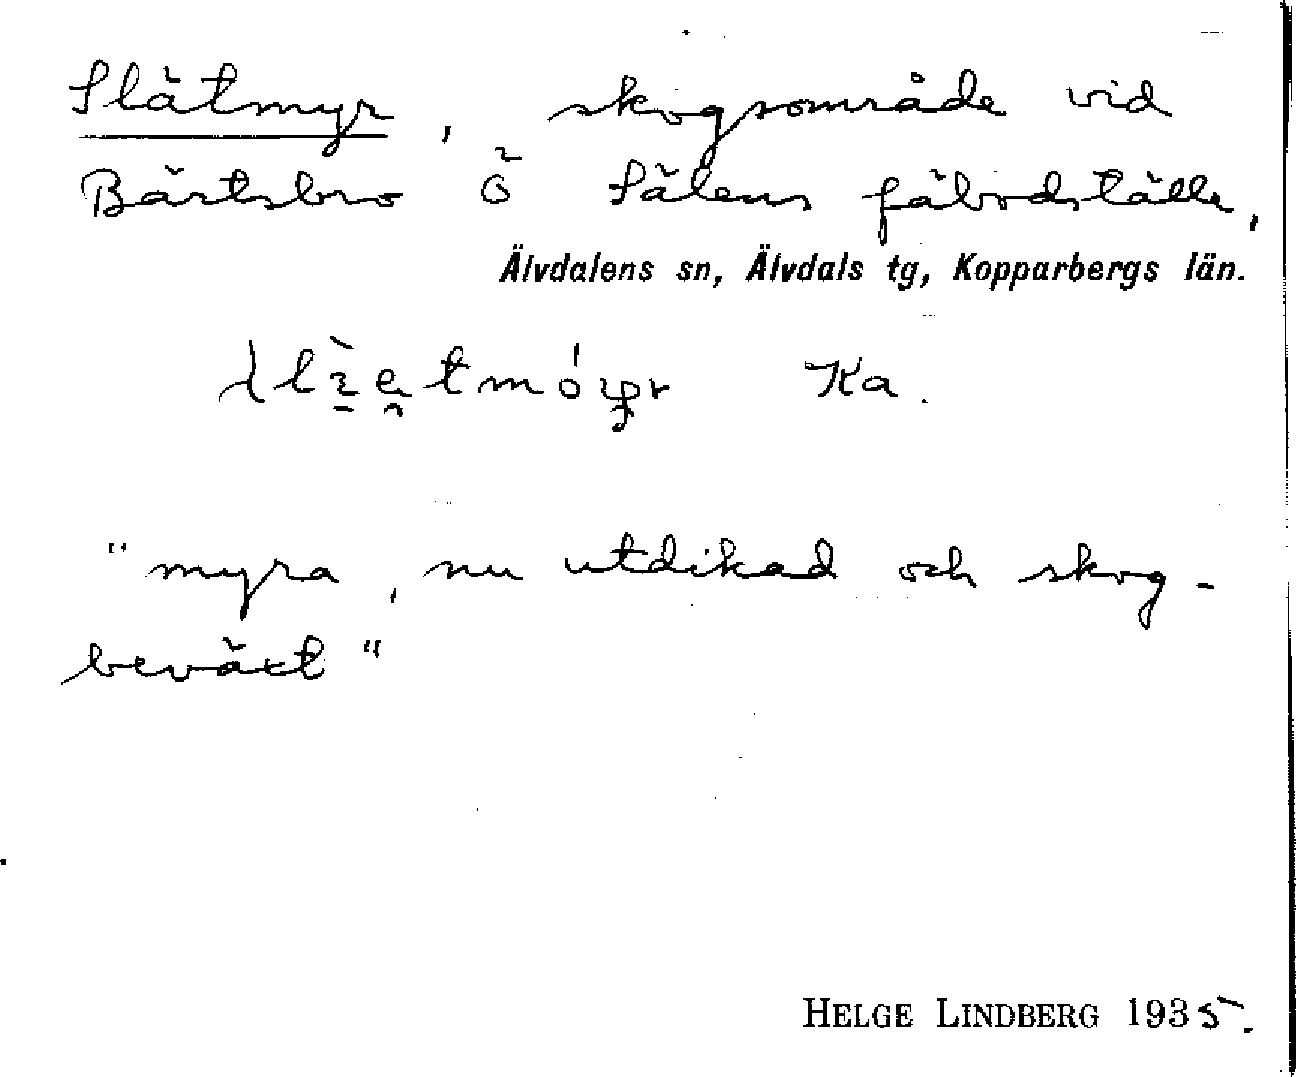 Slätmyr, skogsområde vid
Bärtsbro ö Sälens fäbodställe,
Älvdalens sn, Älvdals tg, Kopparbergs län.
Ka.
"myra, nu utdikad och skog-
beväxt"
HELGE LINDBERG 1935.